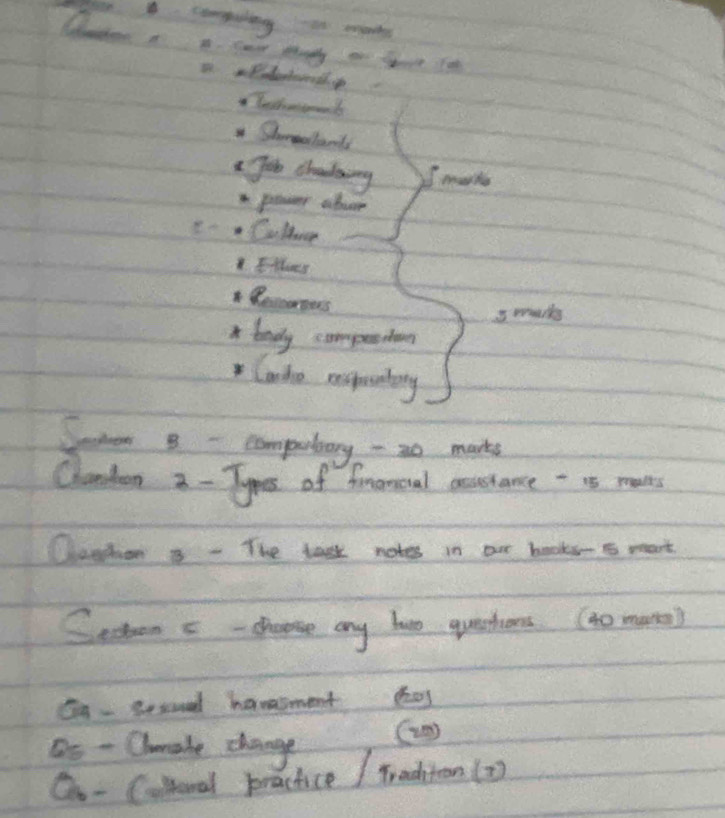 compulsory - 20 marks
Question
* Relationship
*
*
* Job shadowing 5 marks
* power abuse
* Culture
* Ethics
* Resources 5 marks
* body composition
* Cardio respiratory
Section B - compulsory - 20 marks
Question 2 - Types of financial assistance - 15 marks
Question 3 - The task notes in our books - 5 mark
Section C - choose any two questions (40 marks)
Q4 - sexual harasment (20)
Q5 - Climate change (20)
Q6 - Cultural practice / Tradition (?)